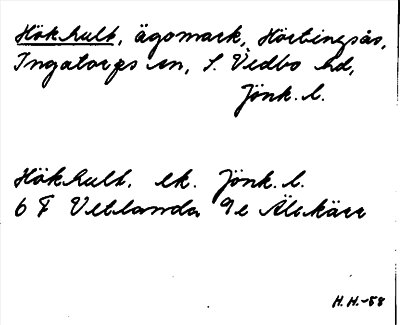 Hökhult, ägomark, Hörtingsås,
Ingatorps sn, S. Vedbo hd,
Jönk. l.
Hökhult. ek. Jönk. l.
6 F Vetlanda 9e Älskärr
H. H. -58